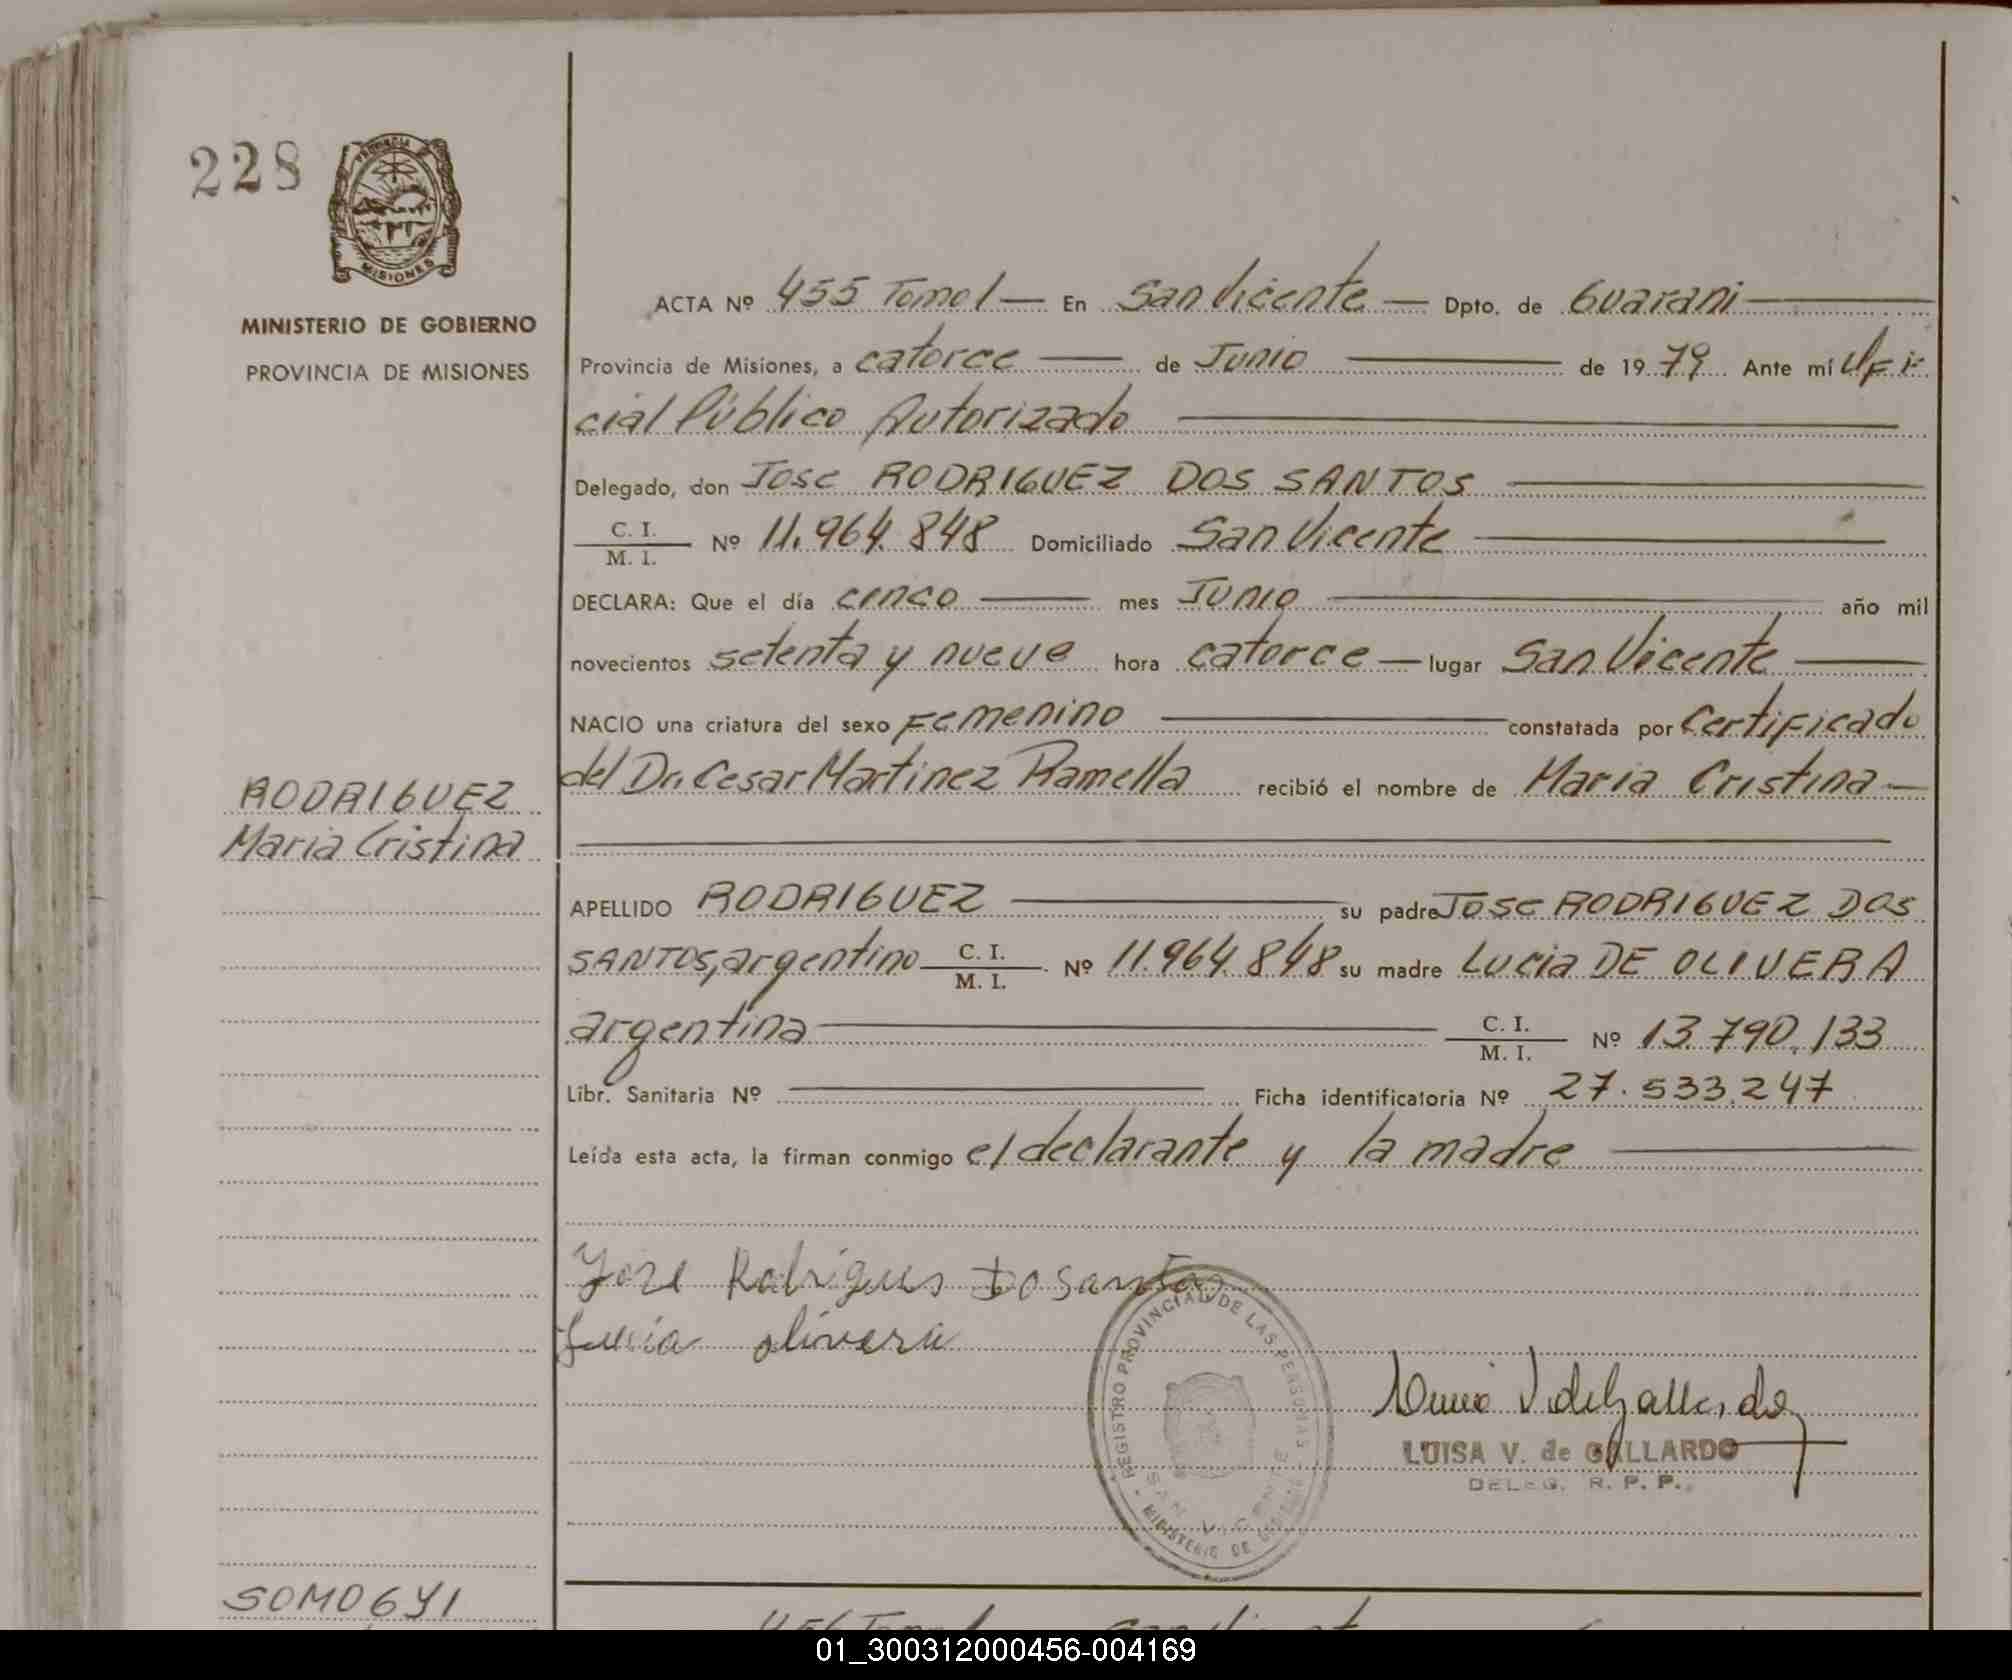 228
PROVINCIA
MISIONES
MINISTERIO DE GOBIERNO
PROVINCIA DE MISIONES
ACTA Nº 455 TomoI — En San Vicente — Dpto. de Guarani
Provincia de Misiones, a catorce de Junio de 1979. Ante mí Ofi-
cial Público Autorizado
Delegado, don Jose RODRIGUEZ DOS SANTOS
C. I.
M. I. Nº 11.964.848 Domiciliado San Vicente
DECLARA: Que el día cinco mes Junio año mil
novecientos setenta y nueve hora catorce — lugar San Vicente
NACIO una criatura del sexo Femenino constatada por Certificado
del Dr. Cesar Martinez Ramella recibió el nombre de Maria Cristina —
RODRIGUEZ
Maria Cristina
APELLIDO RODRIGUEZ su padre Jose RODRIGUEZ DOS
SANTOS, argentino C. I. M. I. Nº 11.964.848 su madre Lucia DE OLIVERA
argentina C. I. M. I. Nº 13.790.133
Libr. Sanitaria Nº Ficha identificatoria Nº 27.533.247
Leída esta acta, la firman conmigo el declarante y la madre
Jose Rodrigues Do Santos
Lucia olivera
REGISTRO PROVINCIAL DE LAS PERSONAS
SAN VICENTE
MINISTERIO DE GOBIERNO
Luisa V. de Gallardo
LUISA V. de GALLARDO
DELEG. R. P. P.
SOMOGYI
456 TomoI San Vicente
01_300312000456-004169